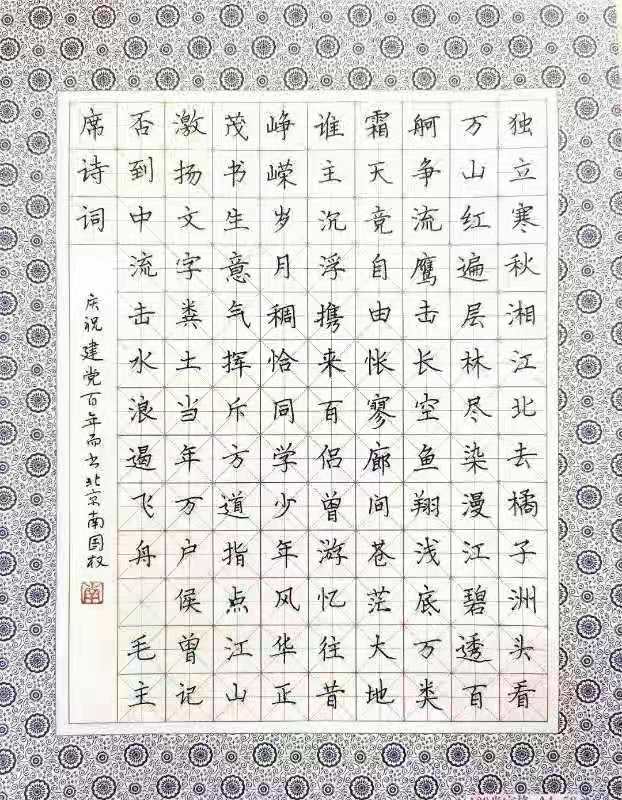 独立寒秋湘江北去橘子洲头看
万山红遍层林尽染漫江碧透百
舸争流鹰击长空鱼翔浅底万类
霜天竞自由怅寥廓问苍茫大地
谁主沉浮携来百侣曾游忆往昔
峥嵘岁月稠恰同学少年风华正
茂书生意气挥斥方遒指点江山
激扬文字粪土当年万户侯曾记
否到中流击水浪遏飞舟 毛主
席诗词
庆祝建党百年而书北京南国权